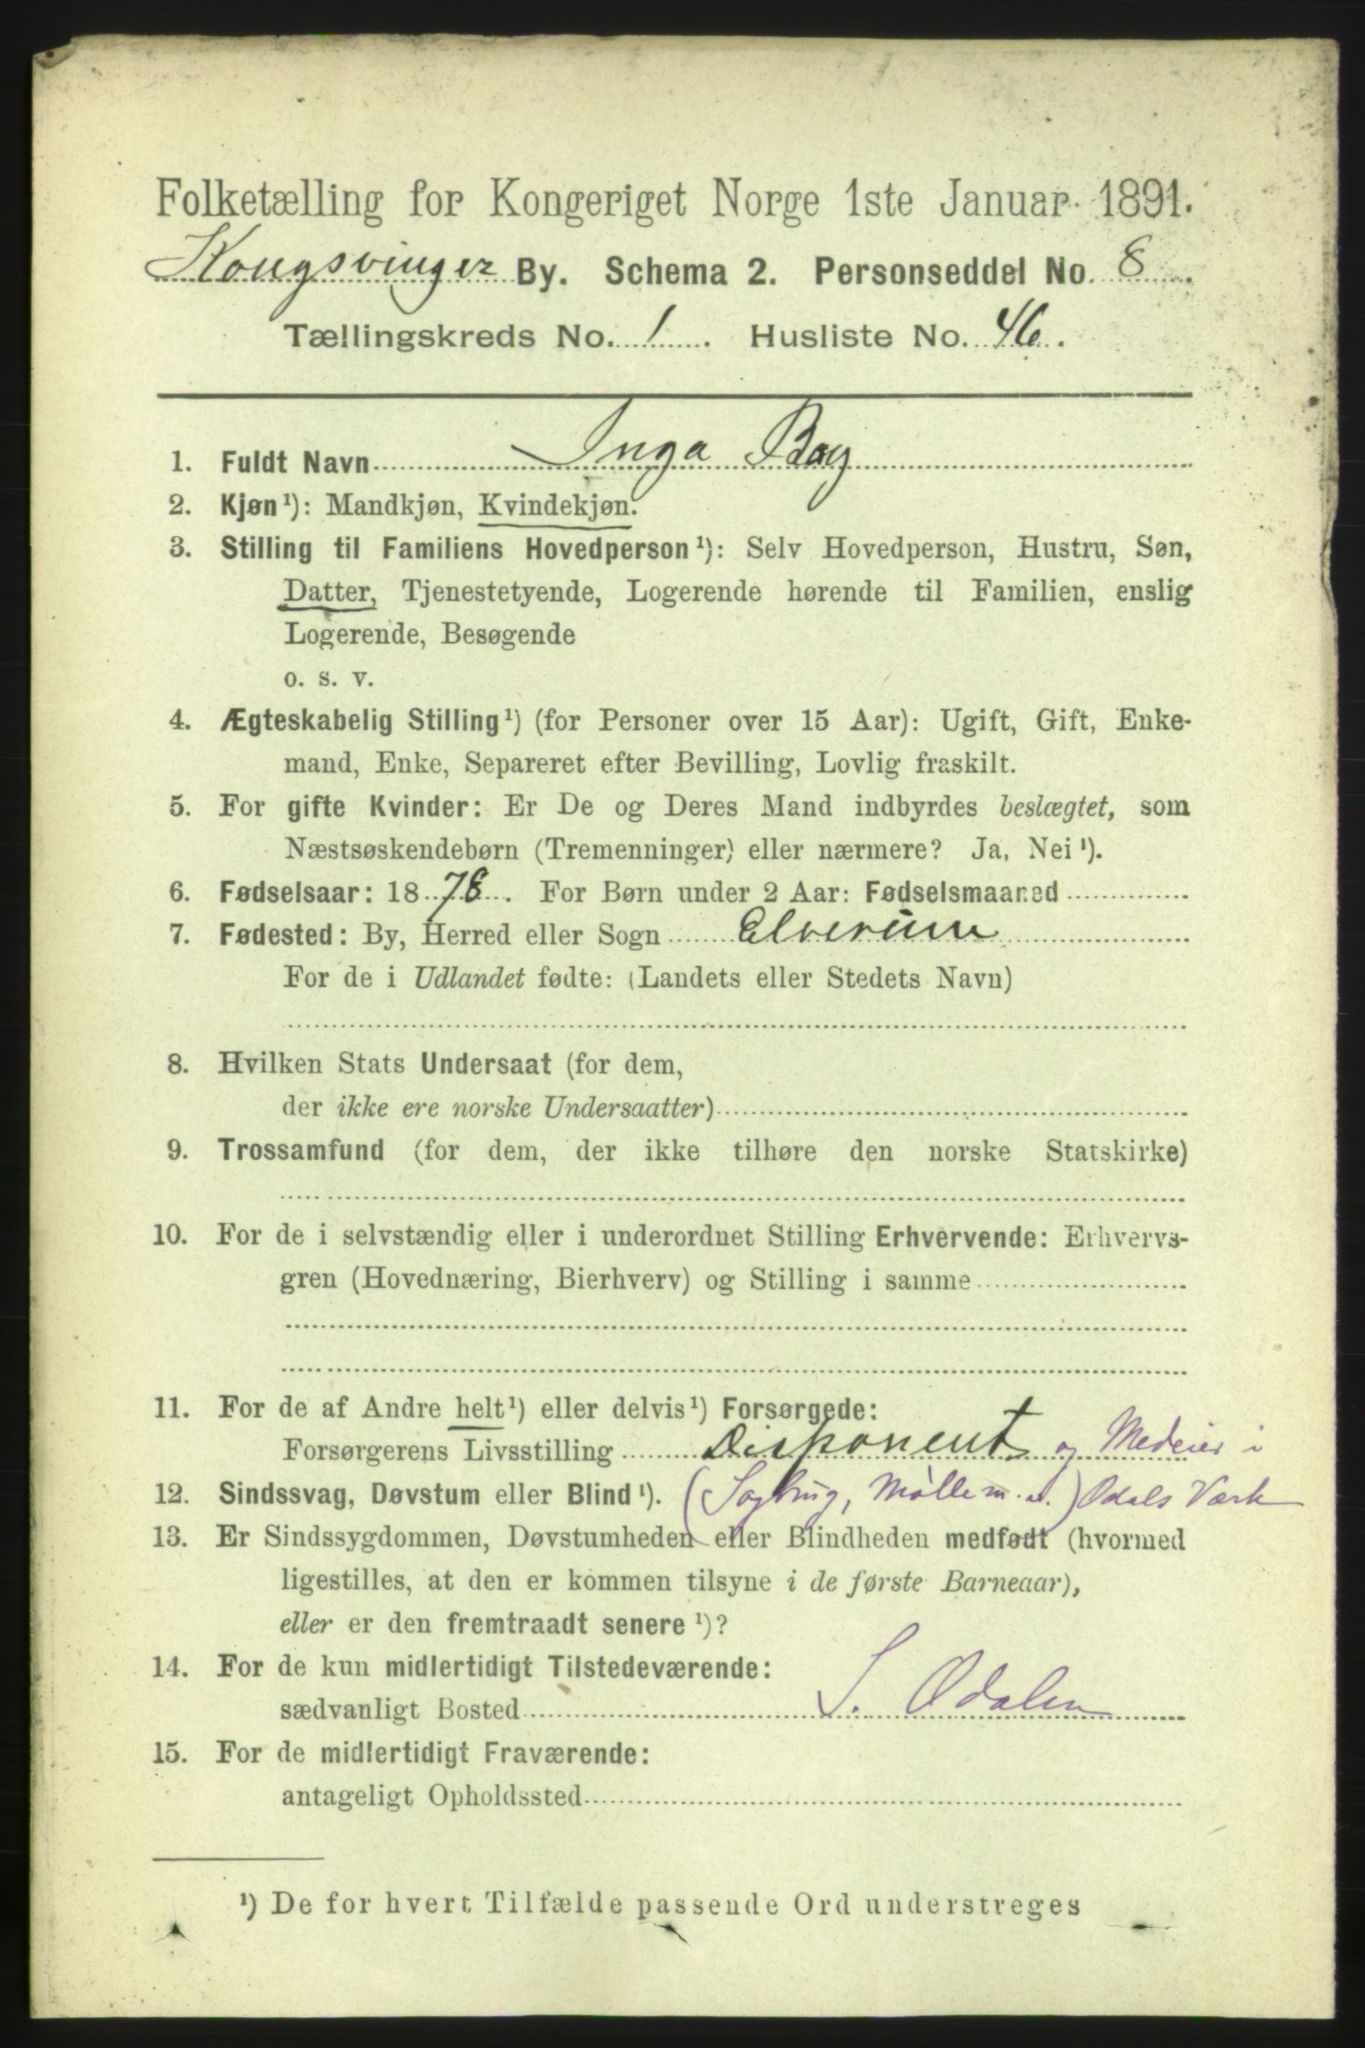 Folketælling for Kongeriget Norge 1ste Januar 1891.
Kongsvinger By. Schema 2. Personseddel No. 8.
Tællingskreds No. 1. Husliste No. 46.
1. Fuldt Navn Inga Bay
2. Kjøn¹): Mandkjøn, Kvindekjøn.
3. Stilling til Familiens Hovedperson¹): Selv Hovedperson, Hustru, Søn,
Datter, Tjenestetyende, Logerende hørende til Familien, enslig
Logerende, Besøgende
o. s. v.
4. Ægteskabelig Stilling¹) (for Personer over 15 Aar): Ugift, Gift, Enke-
mand, Enke, Separeret efter Bevilling, Lovlig fraskilt.
5. For gifte Kvinder: Er De og Deres Mand indbyrdes beslægtet, som
Næstsøskendebørn (Tremenninger) eller nærmere? Ja, Nei¹).
6. Fødselsaar: 1878. For Børn under 2 Aar: Fødselsmaaned
7. Fødested: By, Herred eller Sogn Elverum
For de i Udlandet fødte: (Landets eller Stedets Navn)
8. Hvilken Stats Undersaat (for dem,
der ikke ere norske Undersaatter)
9. Trossamfund (for dem, der ikke tilhøre den norske Statskirke)
10. For de i selvstændig eller i underordnet Stilling Erhvervende: Erhvervs-
gren (Hovednæring, Bierhverv) og Stilling i samme
11. For de af Andre helt¹) eller delvis¹) Forsørgede:
Forsørgerens Livsstilling Disponent og Medeier i
12. Sindssvag, Døvstum eller Blind¹). (Sagbrug, Mølle m. m.) Odals Værk
13. Er Sindssygdommen, Døvstumheden eller Blindheden medfødt (hvormed
ligestilles, at den er kommen tilsyne i de første Barneaar),
eller er den fremtraadt senere¹)?
14. For de kun midlertidigt Tilstedeværende:
sædvanligt Bosted S. Odalen
15. For de midlertidigt Fraværende:
antageligt Opholdssted
¹) De for hvert Tilfælde passende Ord understreges